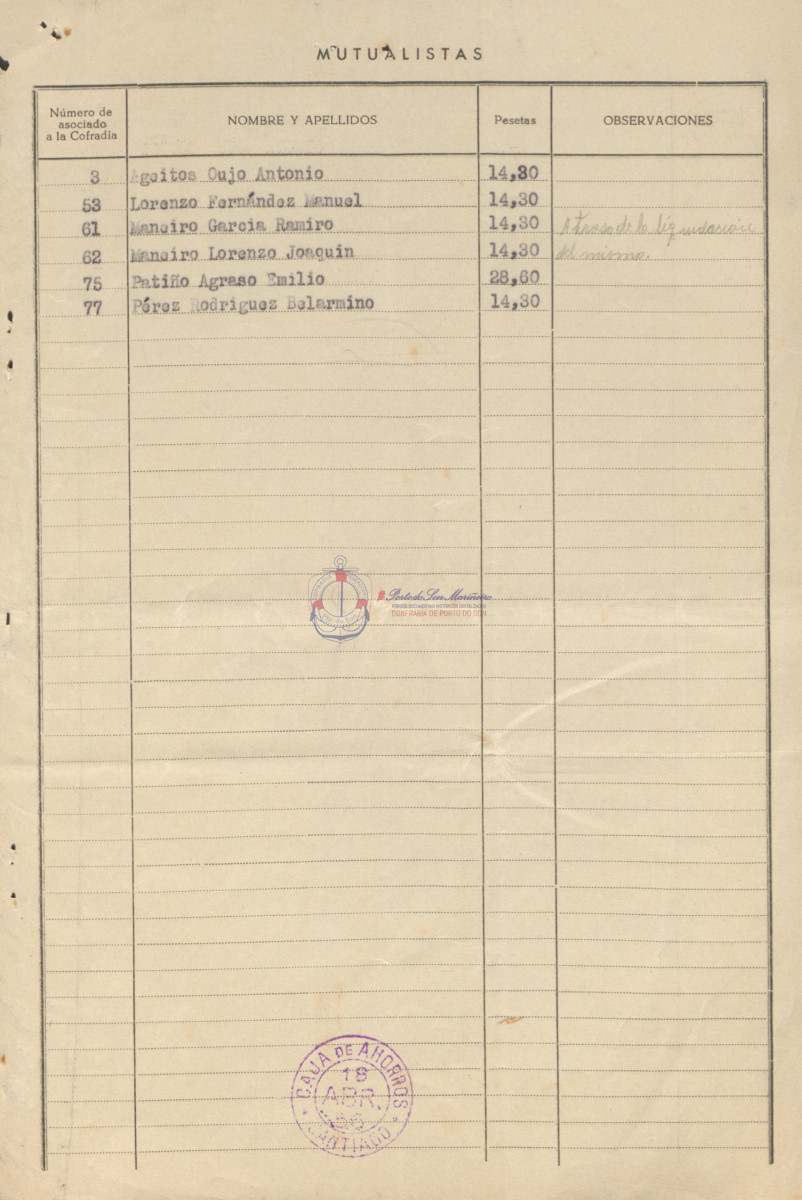 MUTUALISTAS
Número de asociado a la Cofradía NOMBRE Y APELLIDOS Pesetas OBSERVACIONES
3 Ageitos Oujo Antonio 14,30
53 Lorenzo Fernández Manuel 14,30
61 Maneiro Garcia Ramiro 14,30 Atraso de la liquidación
62 Maneiro Lorenzo Joaquin 14,30 del mismo.
75 Patiño Agraso Emilio 28,60
77 Pérez Rodriguez Belarmino 14,30
Porto do Son Mariñeiro
COFRARÍA DE PORTO DO SON
CAJA DE AHORROS
18
ABR.
56
SANTIAGO